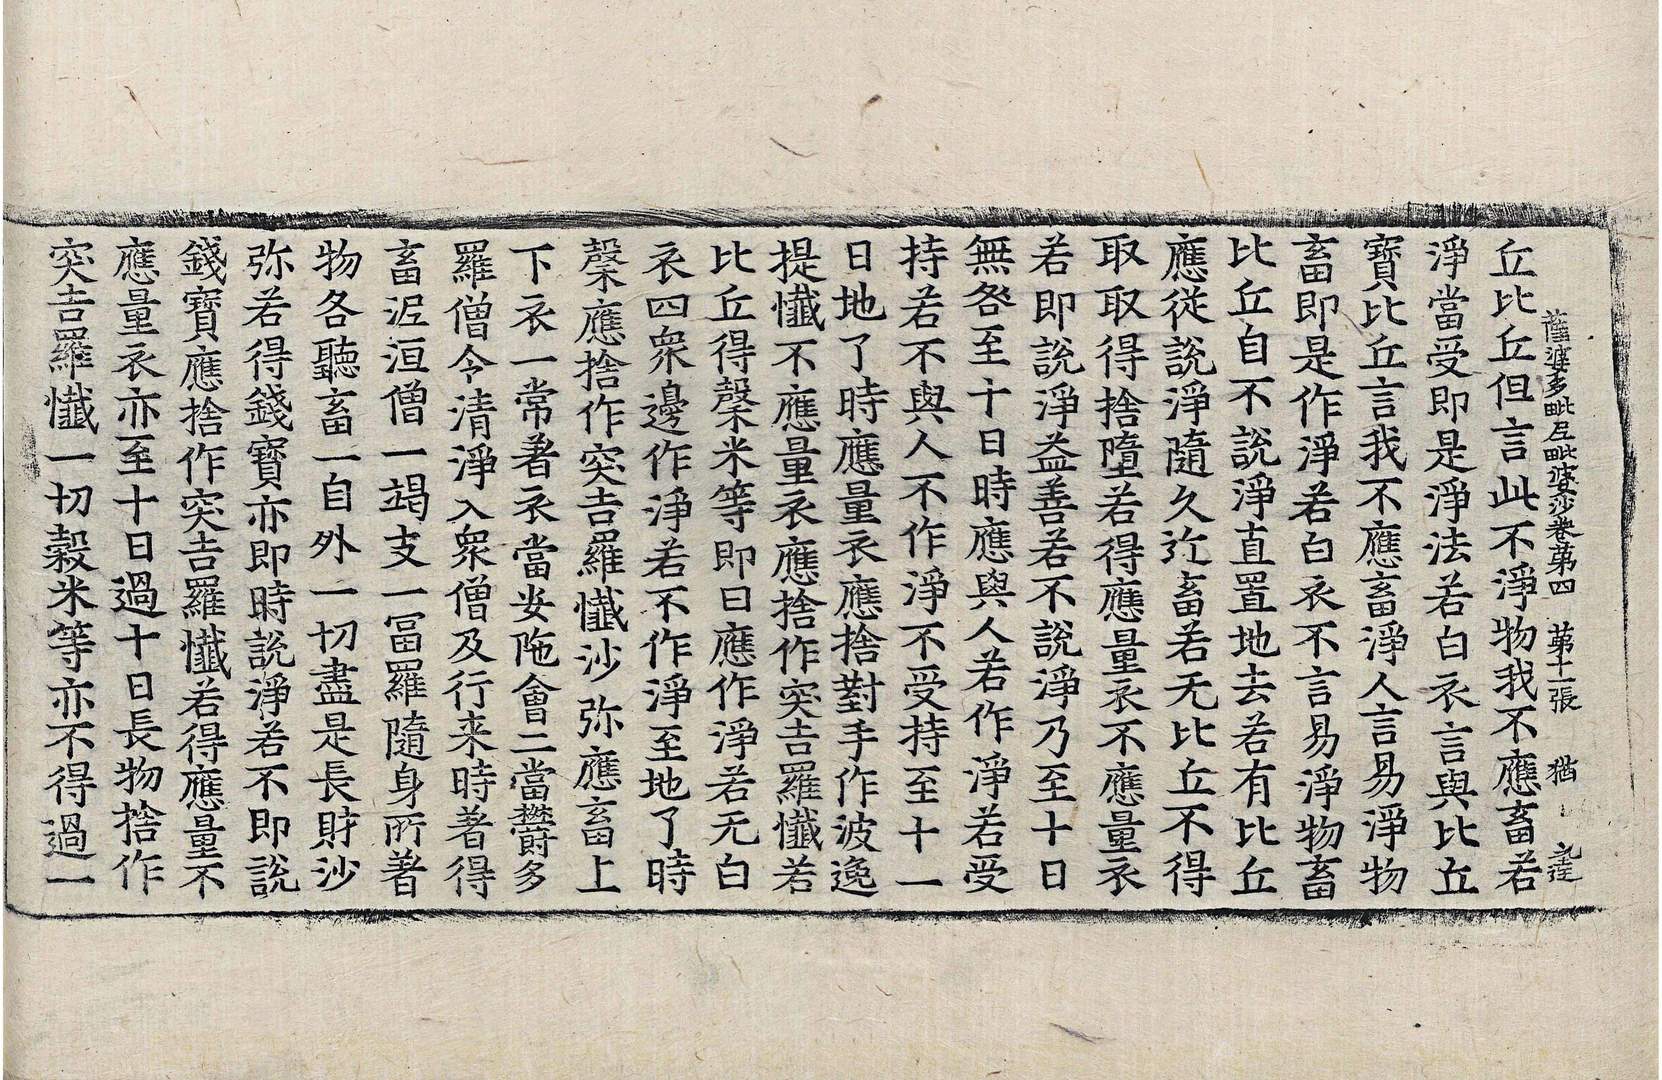 薩婆多毗尼毗婆沙卷第四 第十一張 猶
丘比丘但言此不淨物我不應畜若
淨當受即是淨法若白衣言與比丘
寶比丘言我不應畜淨人言易淨物
畜即是作淨若白衣不言易淨物畜
比丘自不說淨直置地去若有比丘
應從說淨隨久近畜若无比丘不得
取取得捨墮若得應量衣不應量衣
若即說淨益善若不說淨乃至十日
無咎至十日時應與人若作淨若受
持若不與人不作淨不受持至十一
日地了時應量衣應捨對手作波逸
提懺不應量衣應捨作突吉羅懺若
比丘得榖米等即日應作淨若无白
衣四衆邊作淨若不作淨至地了時
榖應捨作突吉羅懺沙弥應畜上
下衣一常著衣當安陁會二當欝多
羅僧令清淨入衆僧及行来時著得
畜泥洹僧一竭支一冨羅隨身所著
物各聽畜一自外一切盡是長財沙
弥若得錢寶亦即時說淨若不即說
錢寶應捨作突吉羅懺若得應量不
應量衣亦至十日過十日長物捨作
突吉羅懺一切穀米等亦不得過一